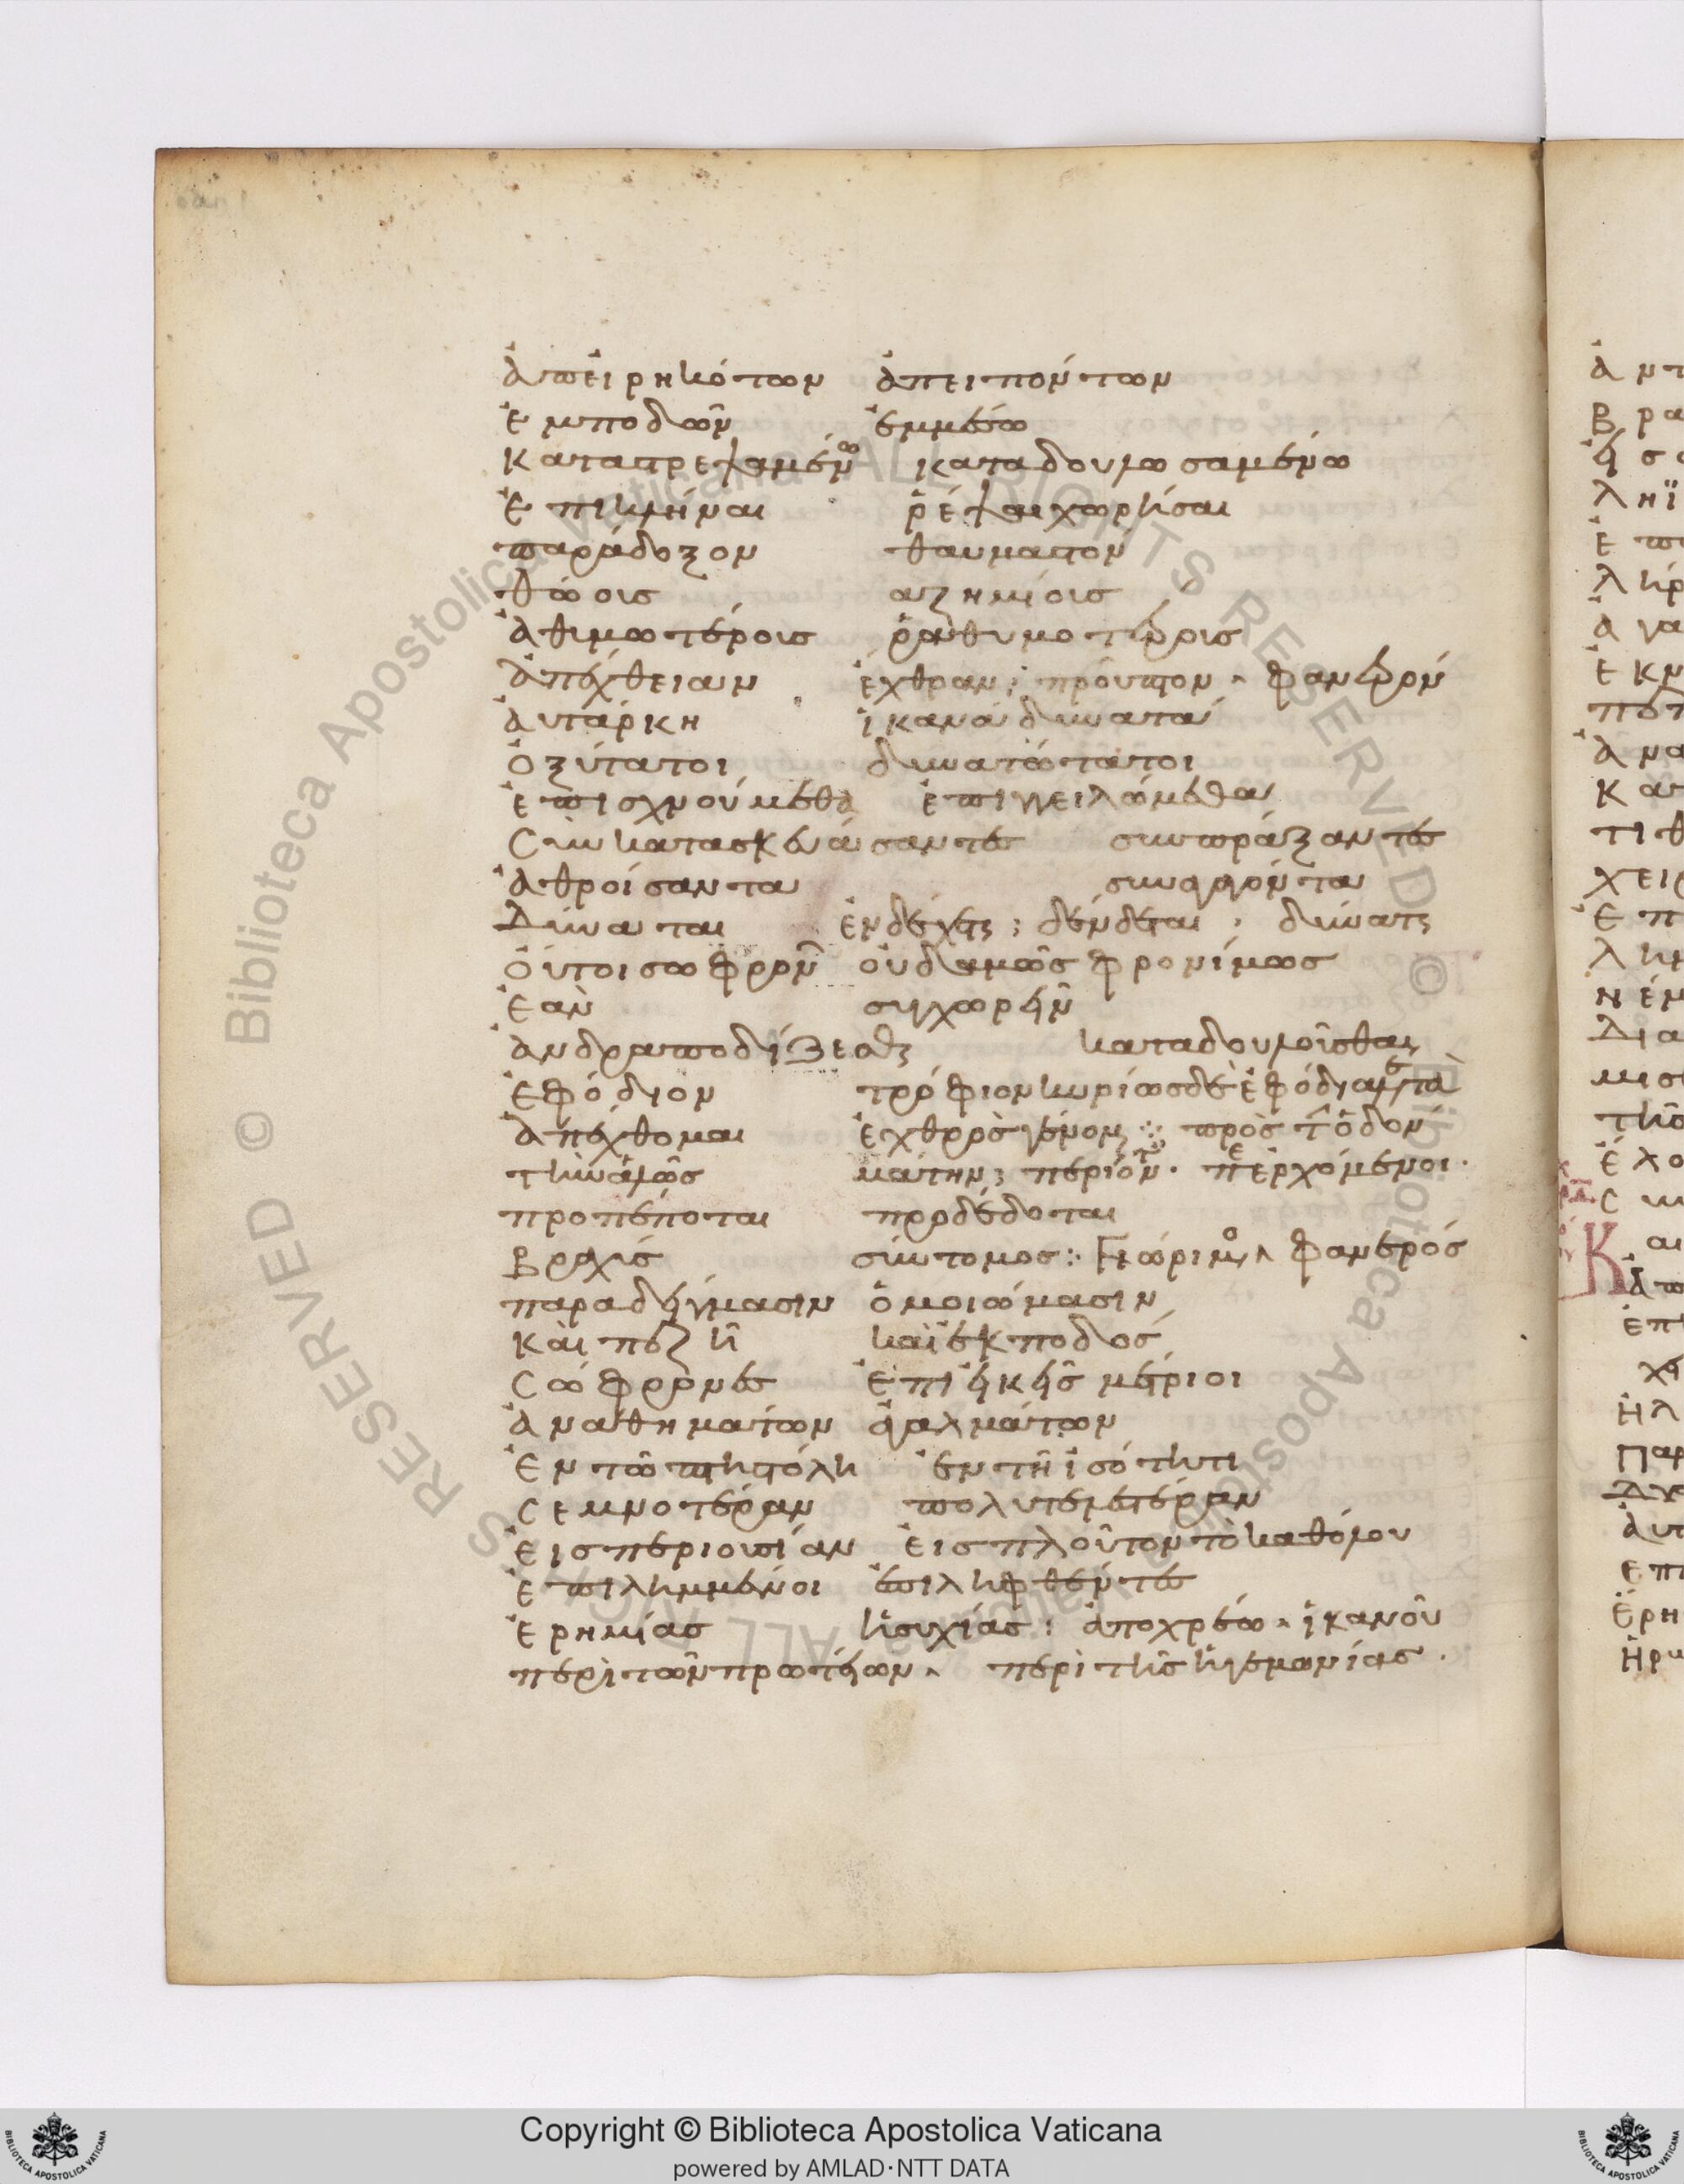 ἀπειρηκότων ἀπειπόντων
ἐμποδὼν ἐμμέσω
καταστρεψαμένω καταδουλωσαμένω
ἐπικλῆναι ῥέψαι χωρῆσαι
παράδοξον θαυμαστόν
θώοις αζημίοις
ἀθυμωτέροις ῥαθυμοτέροις
ἀπέχθειαν ἔχθραν: προῦπτον ^ φανερόν
ἀυτάρκη ἱκανὰ δυνατά
ὀξύτατοι δυνατώτατοι
ἐπισχνούμεθα ἐπιγγειλώμεθα
Συνκατασκευάσαντες συνπράξαντες
ἀθροίσαντα συναγαγόντα
Δύναται ἐνδέχεται: δύναται
οὔτοι σωφρον οὐδαμῶς φρονίμως
ἐὰν συγχωρεῖν
ἀνδραποδίζεσθαι καταδουλοῦσθαι
ἐφόδιον τρόφιον κυρίως δὲ ἐφόδια
ἀπέχθομαι ἐχθρὸς γένομαι ⁘ πρὸς τὴν ὁδόν
τηνάλως μάτην: περιόντες. περιερχόμενοι.
προπέποται προδέδοται
Βραχύς σύντομος: Γνώριμος ^ φανερός
παραδείγμασιν ὁμοιώμασιν
καὶ πεζῆ καὶ ἐκ ποδός
Σώφρονες ἐπιεικεῖς μέτριοι
ἀναθημάτων ἀγαλμάτων
σεμνοτέραν πολυτελεστέραν
εἰς περιουσίαν εἰς πλοῦτον τὸ καθόλου
ἐπιλημμένοι ἐπιληφθέντες
ἐρημίας ἡσυχίας: ἀποχρέω ^ ἱκανοῦ
περὶ τῶν πρωτείων ^ περὶ τῆς ἡγεμονίας.
Copyright © Biblioteca Apostolica Vaticana
powered by AMLAD·NTT DATA